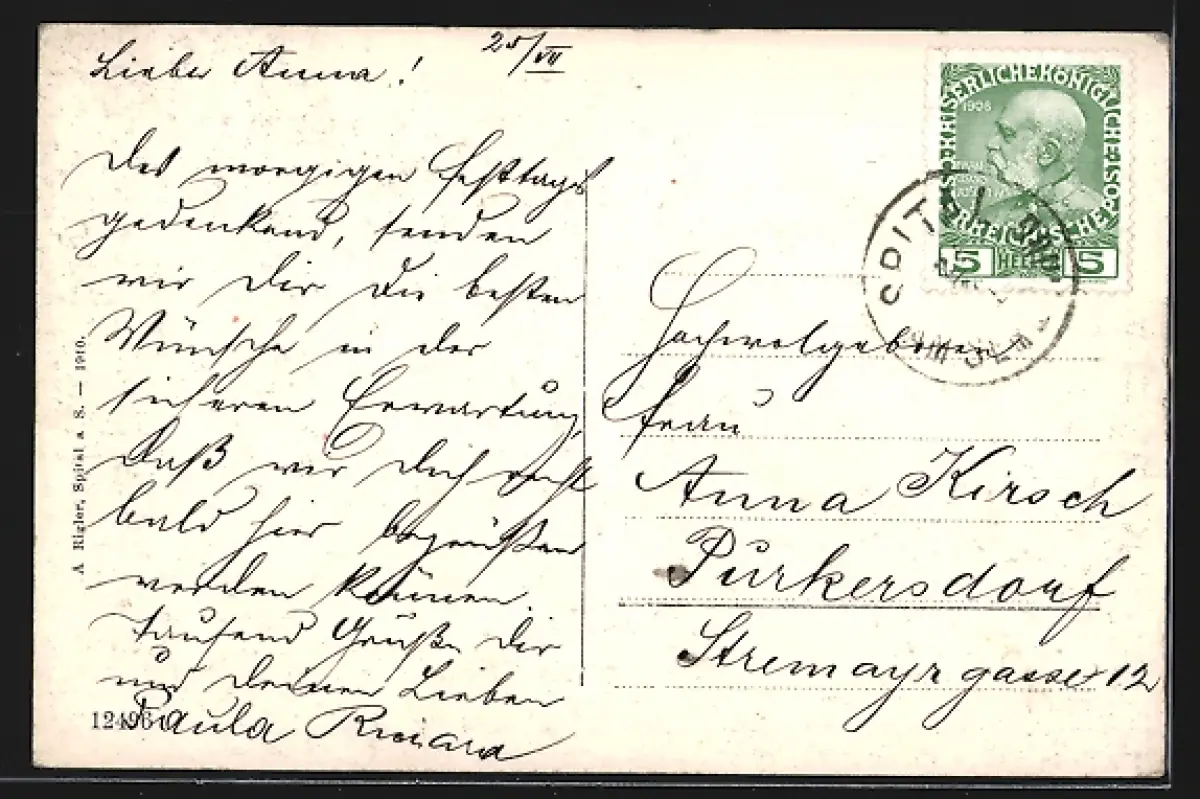 25/VII
Liebe Anna!
Des morgigen Festtags
gedenkend, senden
wir Dir die besten
Wünsche in der
sicheren Erwartung,
daß wir Dich recht
bald hier begrüßen
werden können.
Tausend Grüße Dir
und Deinen Lieben
Paula
12496
A Rigler, Spital a. S. — 1910.
KAISERLICHE KÖNIGLICHE ÖSTERREICHISCHE POST
1908
5 HELLER 5
SPITAL
Hochwolgeboren
Frau
Anna Kirsch
Purkersdorf
Stremayrgasse 12